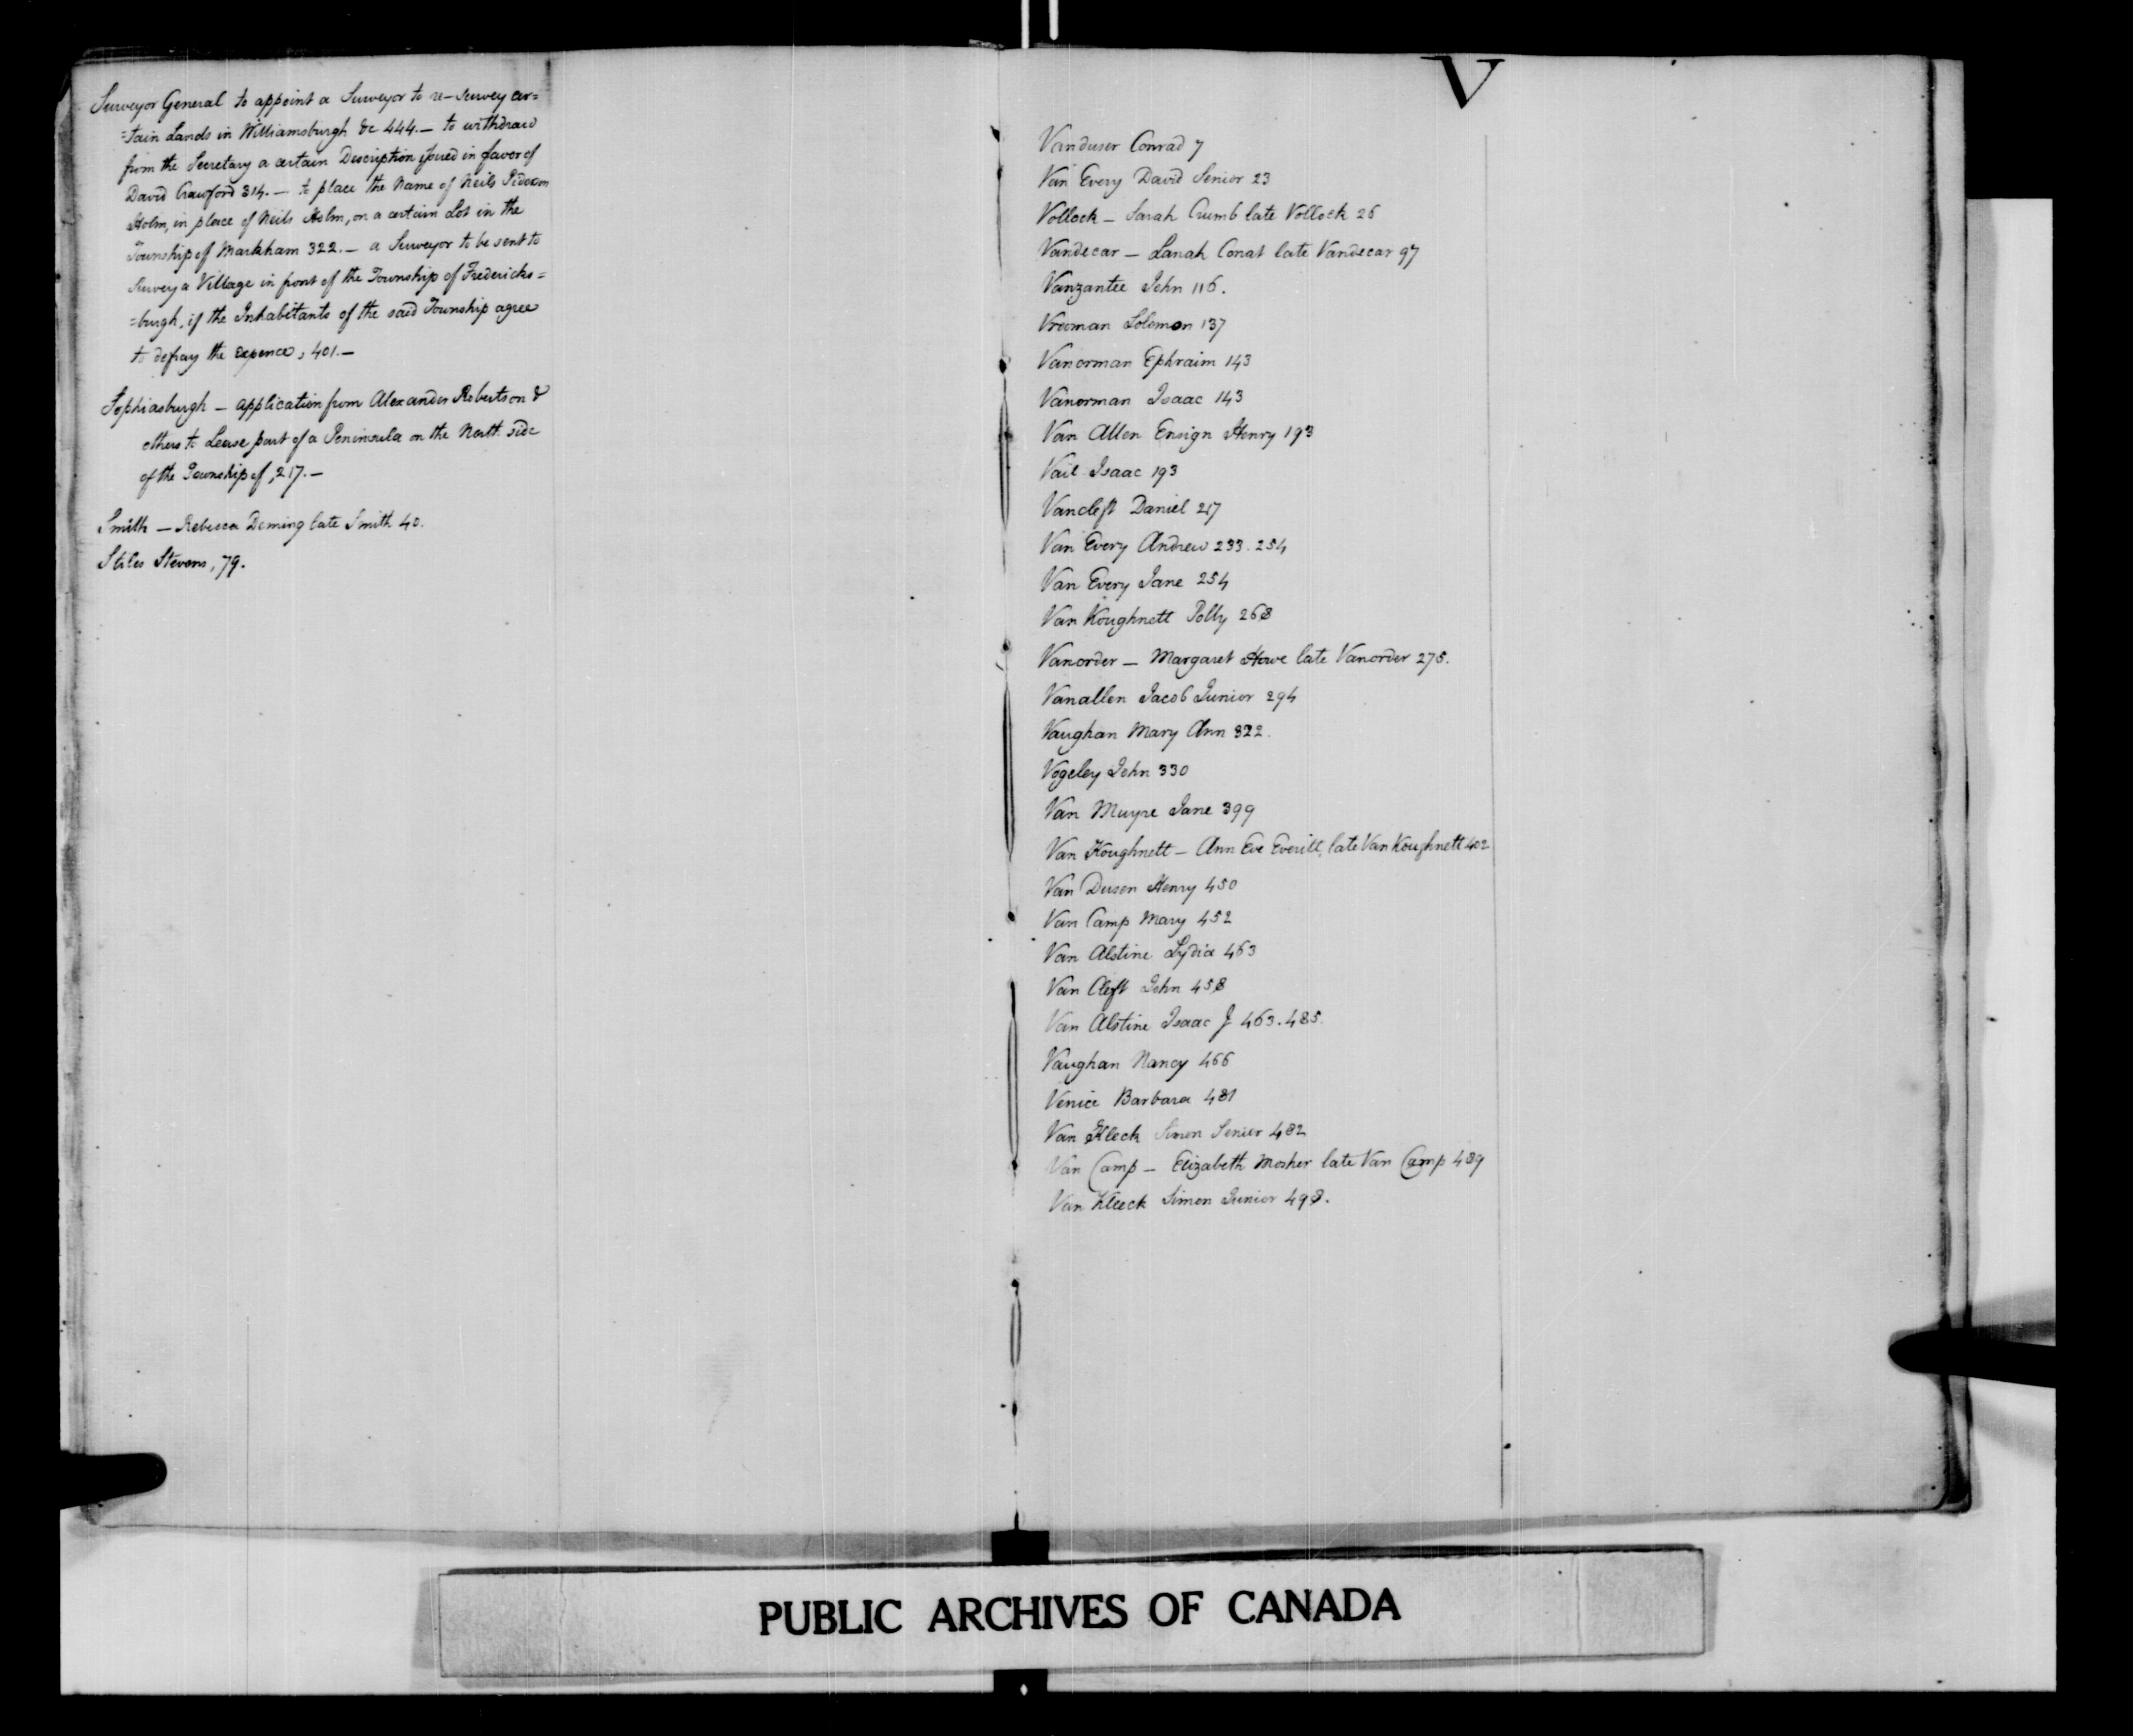 Surveyor General to appoint a Surveyor to re-survey cer=
=tain Lands in Williamsburgh &c 444.— to withdraw
from the Secretary a certain Description issued in favor of
David Crawford 314.— to place the Name of Neils
Holm, in place of Neils Holm, on a certain Lot in the
Township of Markham 322.— a Surveyor to be sent to
Survey a Village in front of the Township of Fredericks=
=burgh, if the Inhabitants of the said Township agree
to defray the expence, 401.—
Sophiasburgh — application from Alexander Robertson &
others to Lease part of a Peninsula on the North side
of the Township of, 217.—
Smith — Rebecca Deming late Smith 40.
Stiles Stevens, 79.
V
Vanduser Conrad 7
Van Every David Senior 23
Vollock — Sarah Crumb late Vollock 26
Vandecar — Lanah Conat late Vandecar 97
Vanzantee John 116.
Vrooman Solomon 137
Vanorman Ephraim 143
Vanorman Isaac 143
Van Allen Ensign Henry 193
Vail Isaac 193
Vancleft Daniel 217
Van Every Andrew 233. 254
Van Every Jane 254
Van Koughnett Polly 268
Vanorder — Margaret Howe late Vanorder 275.
Vanallen Jacob Junior 294
Vaughan Mary Ann 322.
Vogeley John 330
Van Muyre Jane 399
Van Koughnett — Ann Eve Everitt, late Van Koughnett 402
Van Dusen Henry 450
Van Camp Mary 452
Van Alstine Lydia 463
Van Cleft John 458
Van Alstine Isaac J 463. 485.
Vaughan Nancy 466
Venice Barbara 481
Van Kleeck Simon Senior 482
Van Camp — Elizabeth Mosher late Van Camp 489
Van Kleeck Simon Junior 498.
PUBLIC ARCHIVES OF CANADA